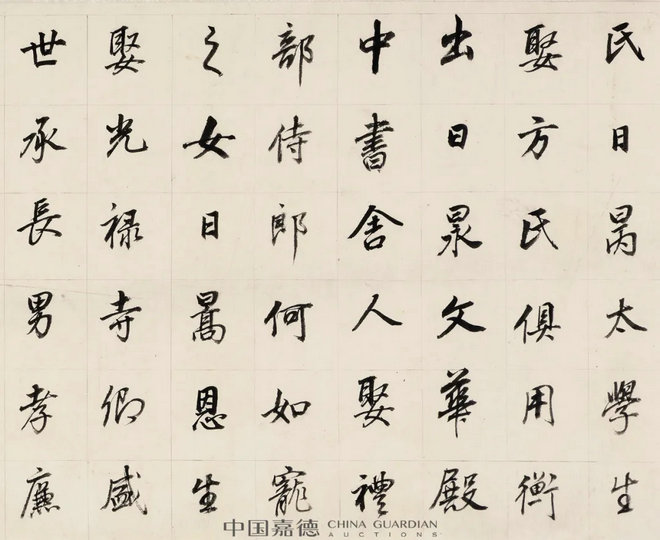 氏日昺太學生
娶方氏俱用衡
出日杲文華殿
中書舍人娶禮
部侍郎何如寵
之女日暠恩生
娶光祿寺卿盛
世承長男孝廉
中国嘉德 CHINA GUARDIAN AUCTIONS